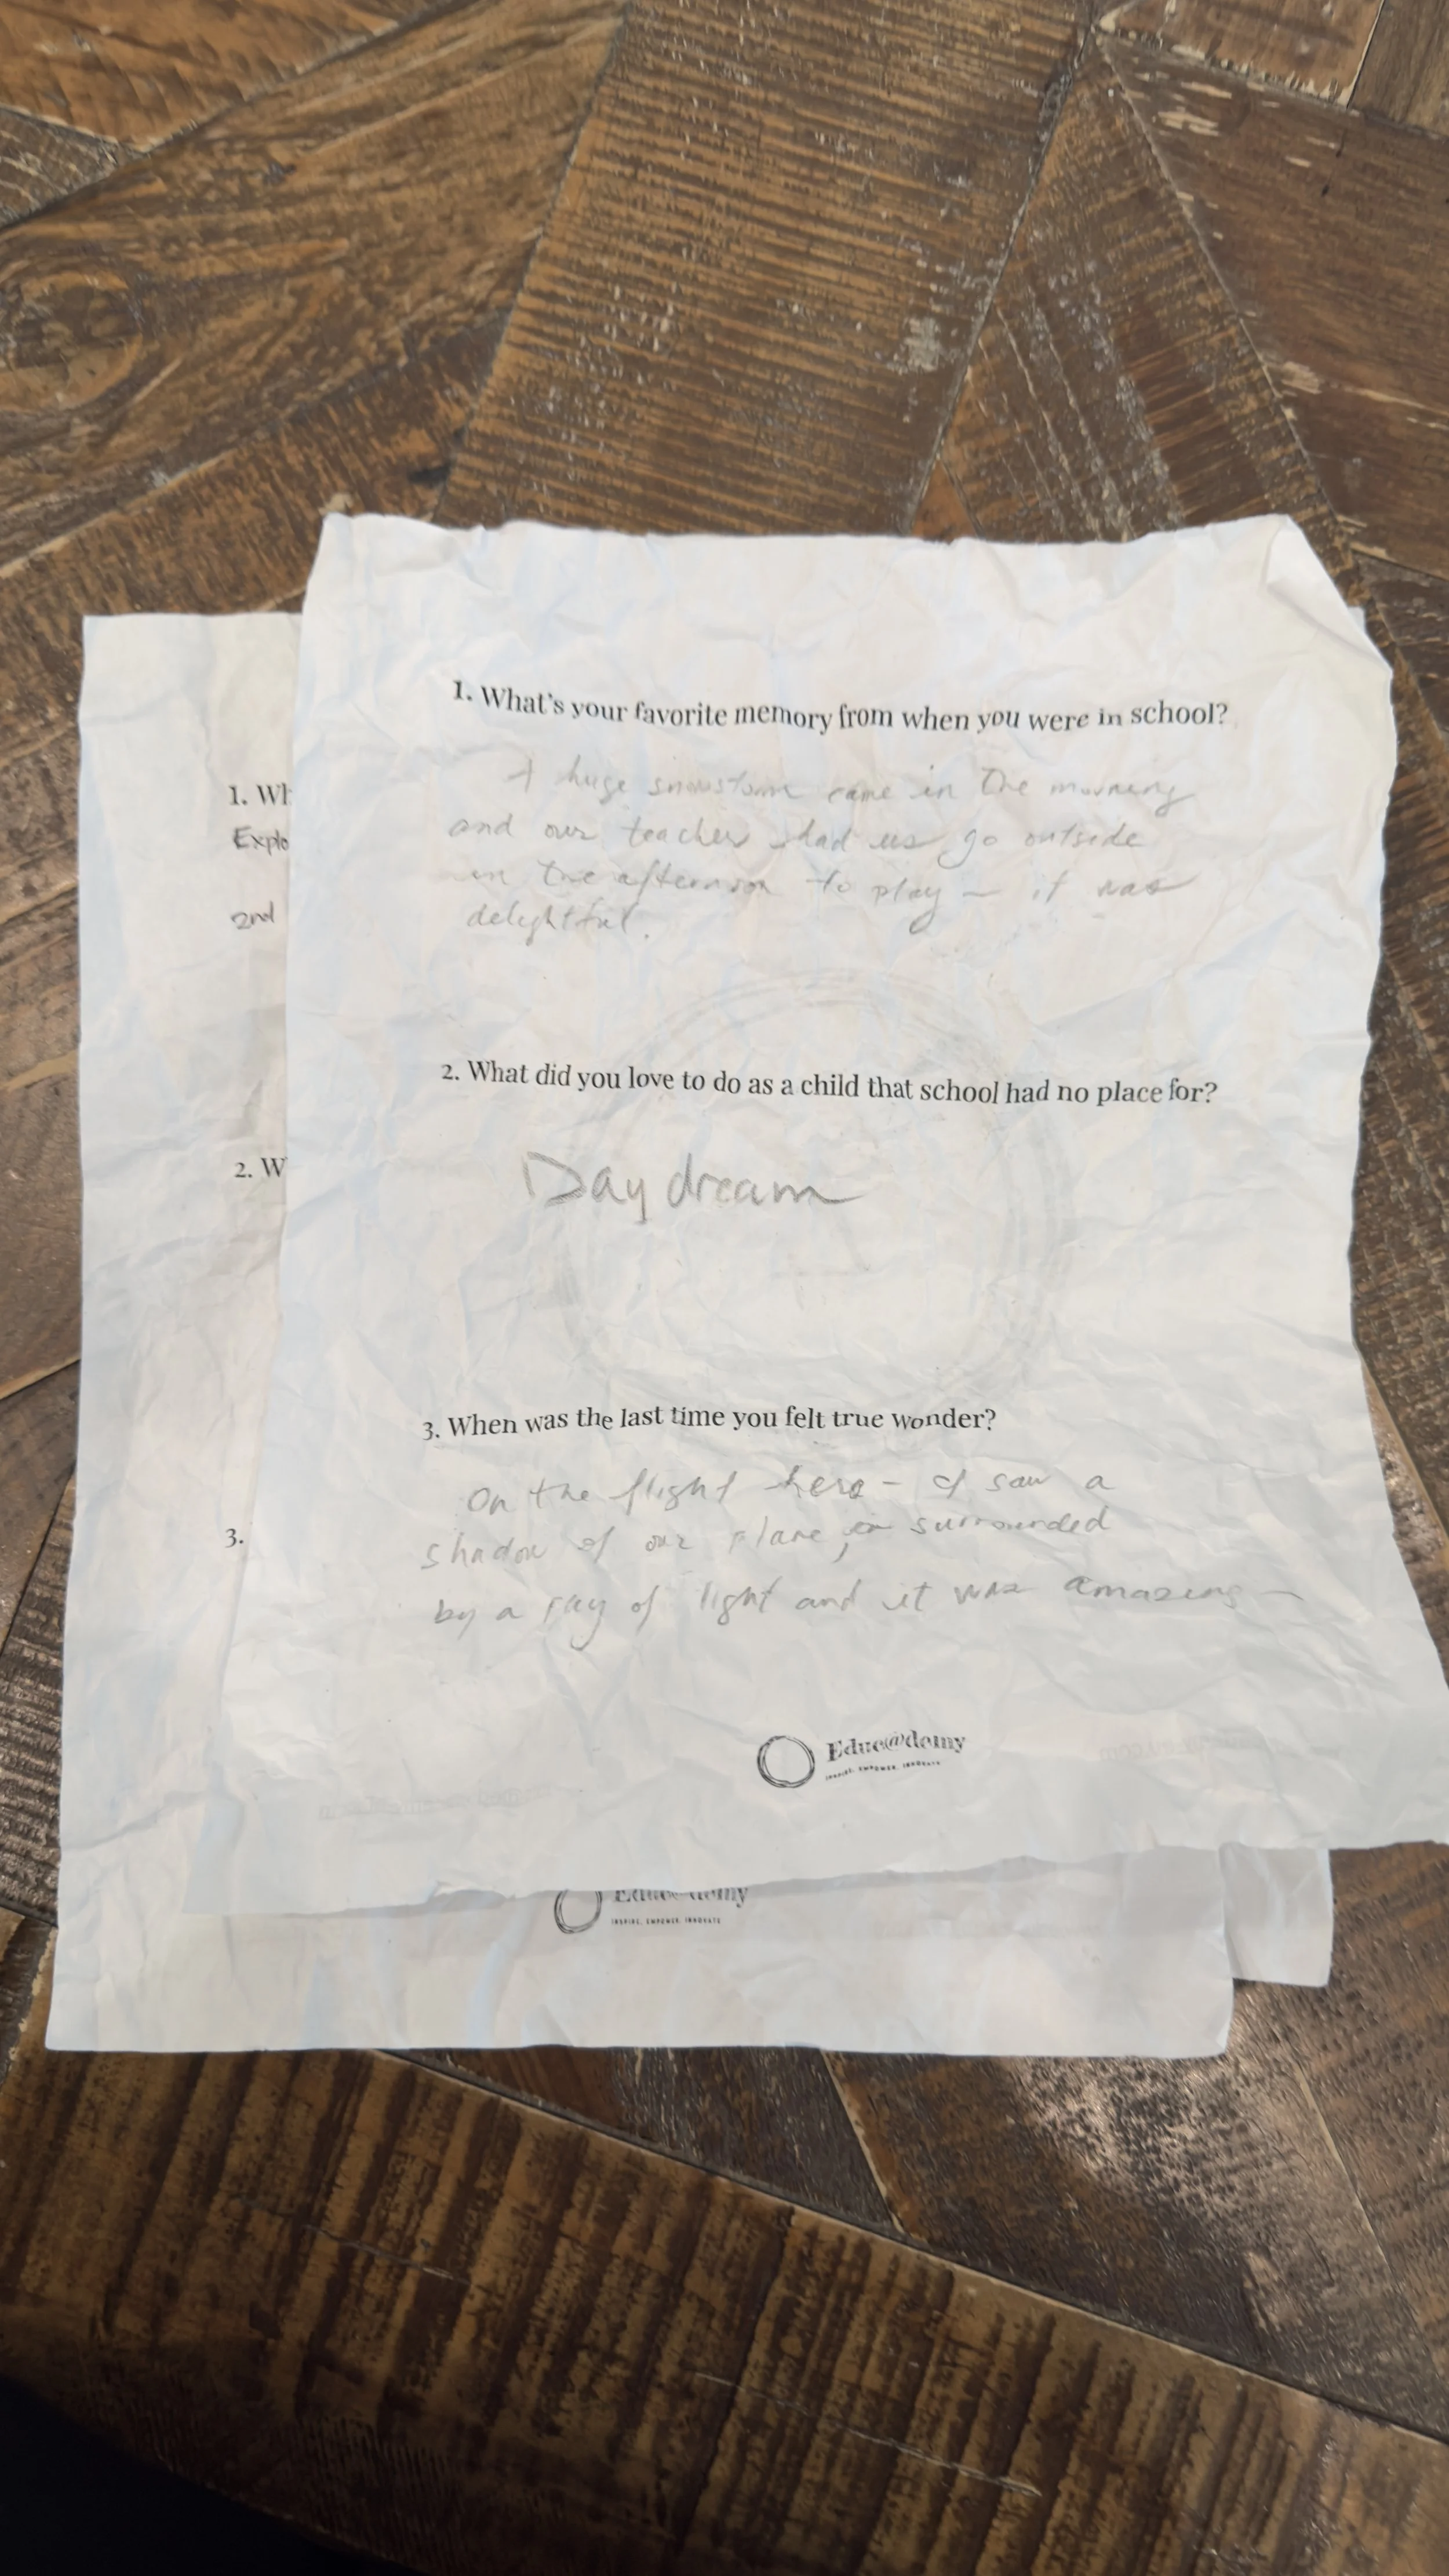 1. What's your favorite memory from when you were in school?
A huge snowstorm came in the morning
and our teacher had us go outside
in the afternoon to play – it was
delightful.
2. What did you love to do as a child that school had no place for?
Day dream
3. When was the last time you felt true wonder?
On the flight here – I saw a
shadow of our plane, surrounded
by a ray of light and it was amazing –
Educ@demy
INSPIRE. EMPOWER. INNOVATE
1. Wh
Explo
2nd
2. W
3.
Educ@demy
INSPIRE. EMPOWER. INNOVATE